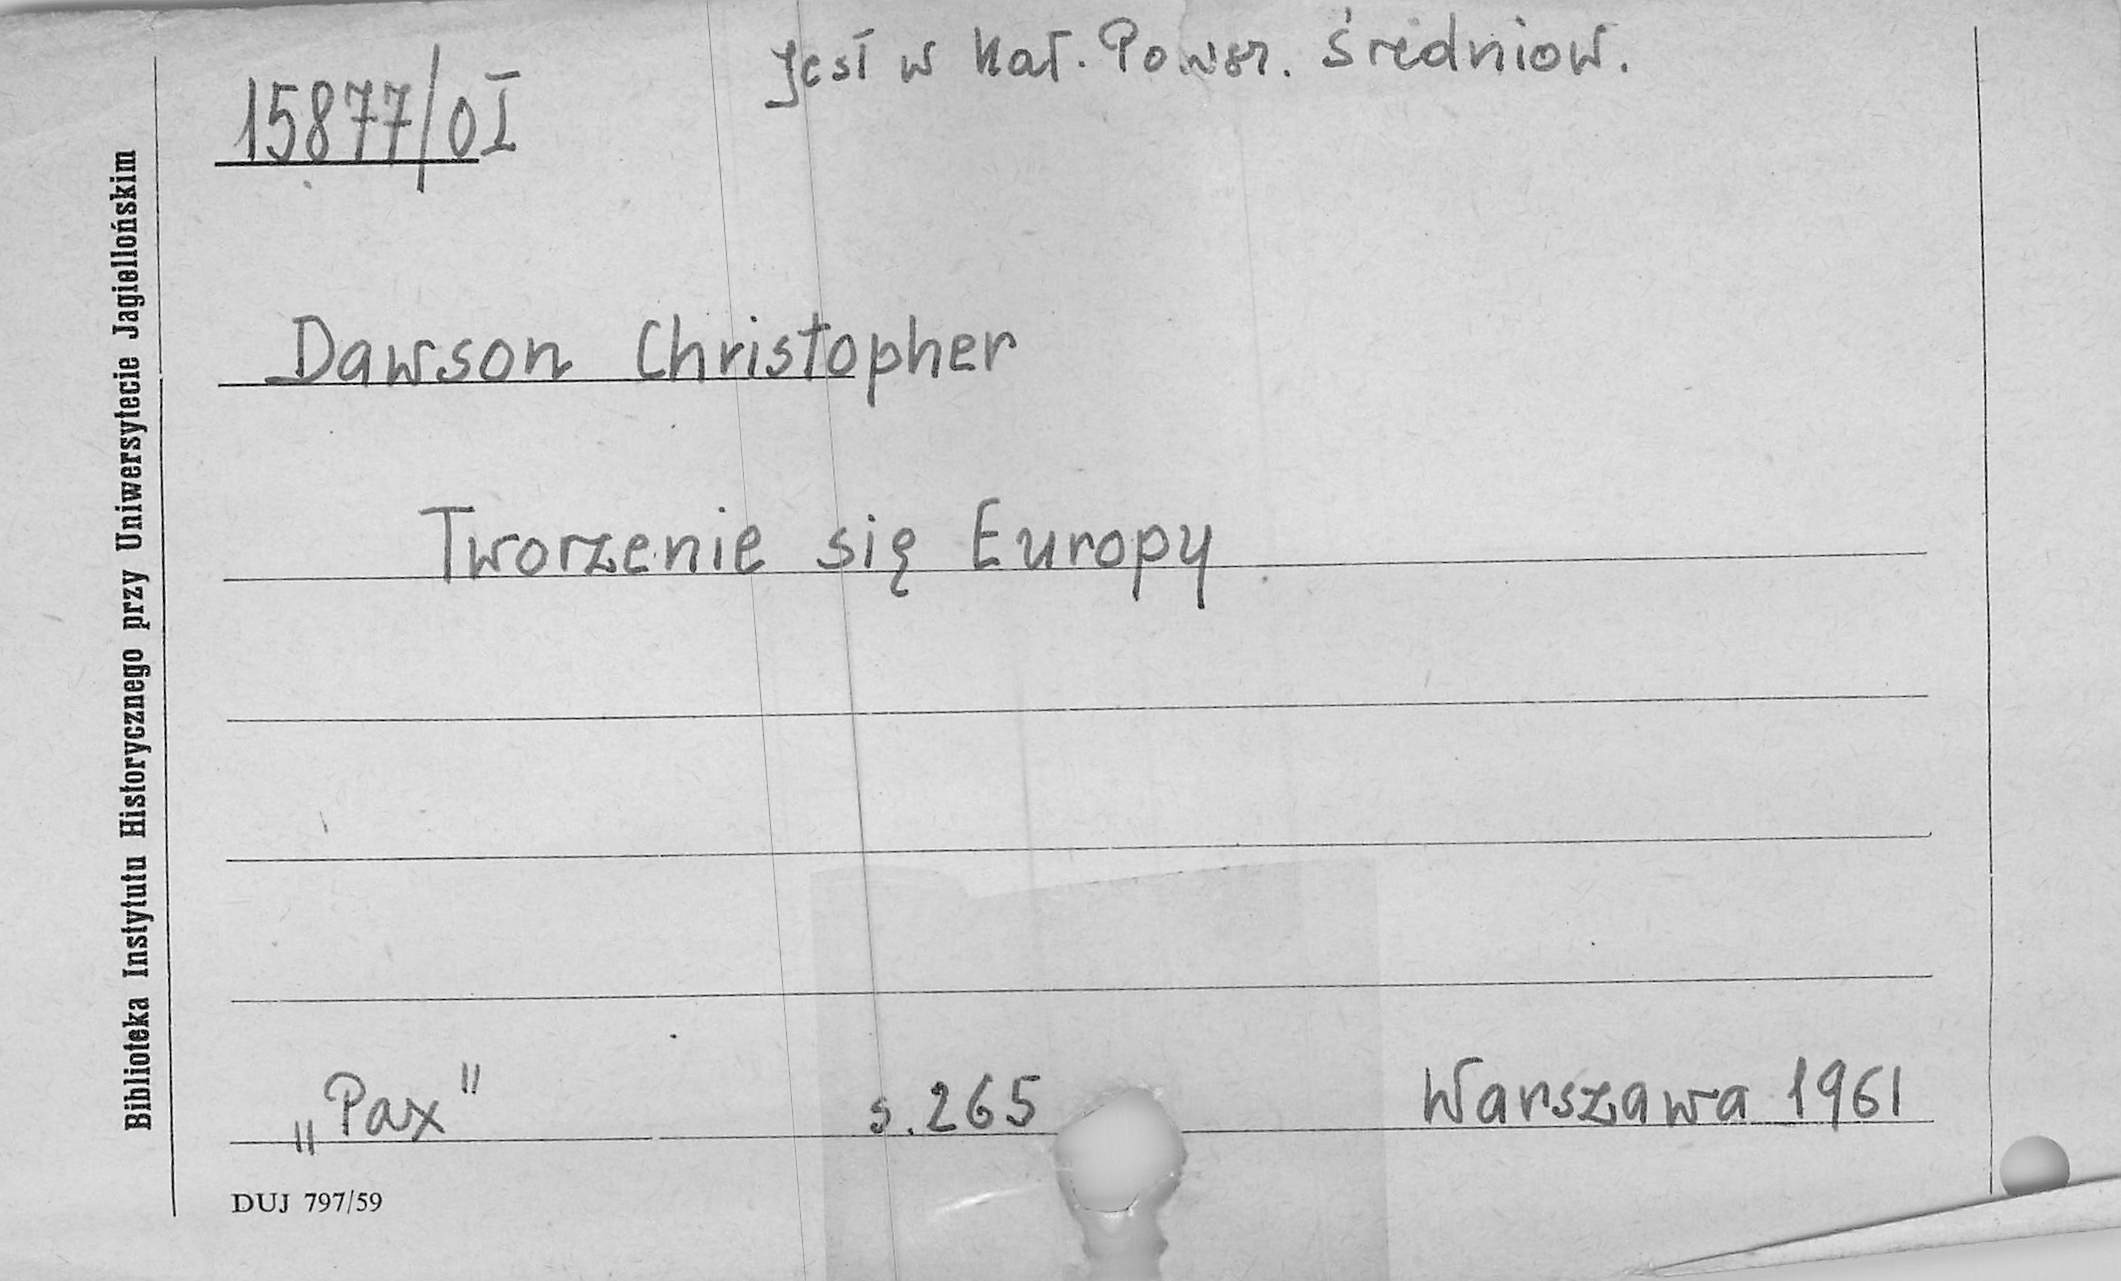 Jest w Kat. Powsz. Średniow.
15877/OI
Dawson Christopher
Tworzenie się Europy
„Pax" s. 265 Warszawa 1961
DUJ 797/59
Biblioteka Instytutu Historycznego przy Uniwersytecie Jagiellońskim